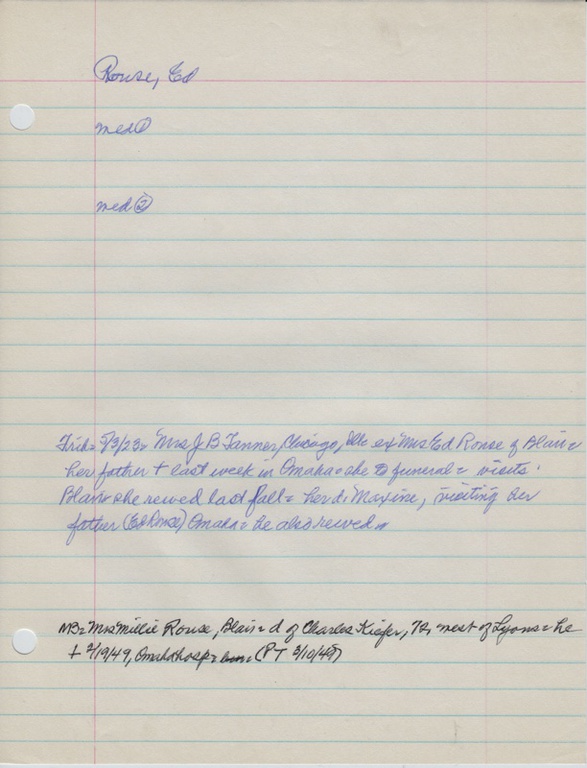 Rouse, Ed
med ①
med ②
Trib= 5/3/23= Mrs J B Tanner, Chicago, Ills ex Mrs Ed Rouse of Blair=
her father + last week in Omaha=she @ funeral= visits
Blair=she rewed last fall= her d: Maxine, visiting her
father (Ed Rouse) Omaha= he also rewed=
NB= Mrs Millie Rouse, Blair= d of Charles Kiefer, 72, west of Lyons= he
+ 2/19/49, Omaha hosp= (PT 3/10/49)